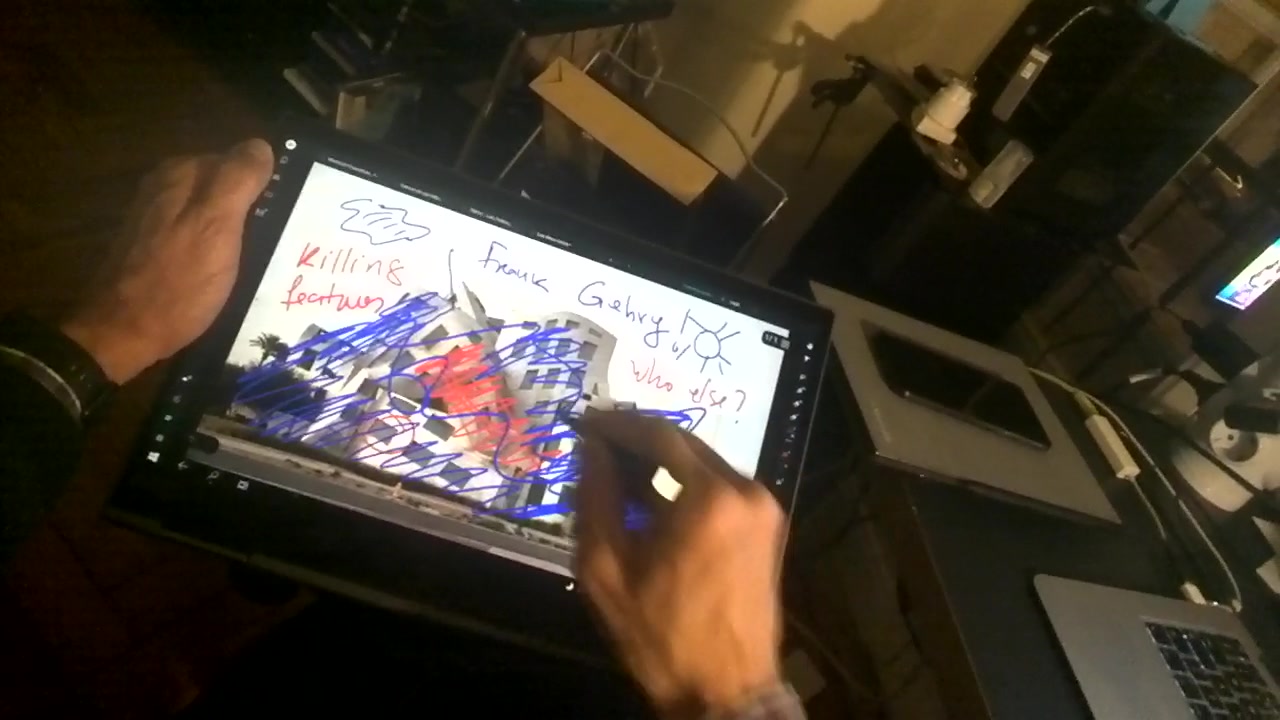 Killing
features
Frank Gehry!
Who else?
1/1